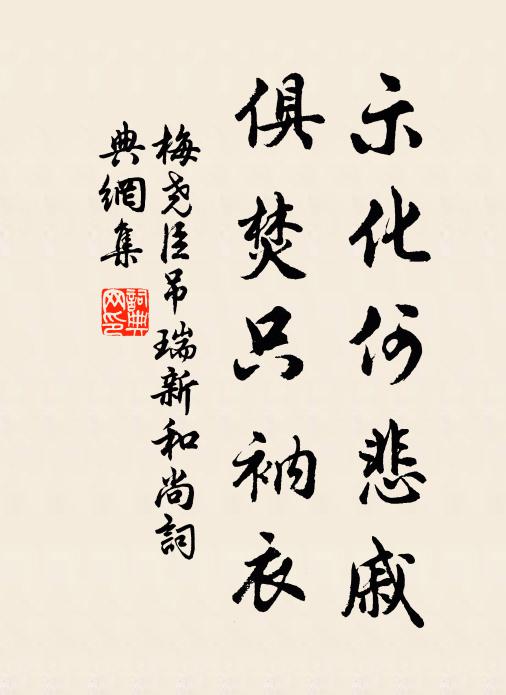 示化何悲戚
俱焚只衲衣
梅尧臣吊瑞新和尚詞
典網集
詞典网印